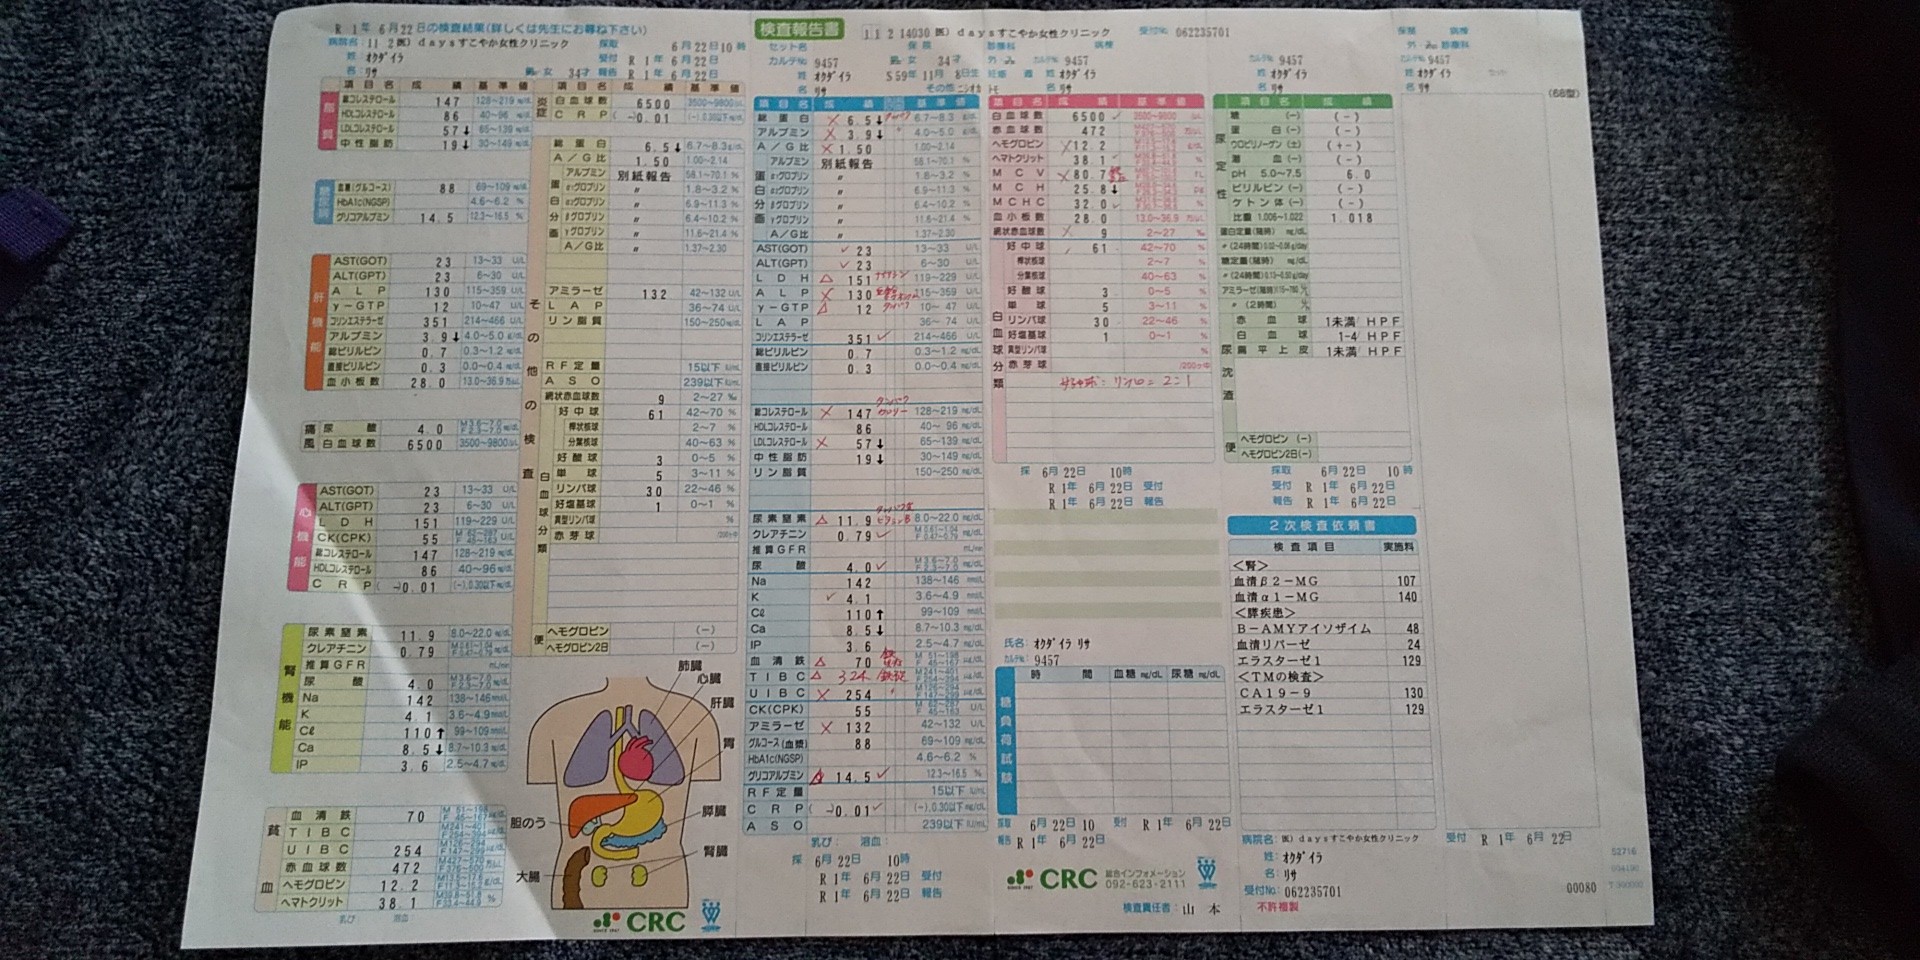 R 1年 6月22日の検査結果(詳しくは先生にお尋ね下さい)
病院名: 11 2 医) daysすこやか女性クリニック
採取 6月22日10時
姓 オクダイラ
受付 R 1年 6月22日
名: リサ
男・女 34才 報告 R 1年 6月22日
項目名 成績 基準値
脂質
総コレステロール 147 128~219 mg/dL
HDLコレステロール 86 40~96 mg/dL
LDLコレステロール 57↓ 65~139 mg/dL
中性脂肪 19↓ 30~149 mg/dL
糖尿病
血糖(グルコース) 88 69~109 mg/dL
HbA1c(NGSP) 4.6~6.2 %
グリコアルブミン 14.5 12.3~16.5 %
肝機能
AST(GOT) 23 13~33 U/L
ALT(GPT) 23 6~30 U/L
ALP 130 115~359 U/L
γ-GTP 12 10~47 U/L
コリンエステラーゼ 351 214~466 U/L
アルブミン 3.9↓ 4.0~5.0 g/dL
総ビリルビン 0.7 0.3~1.2 mg/dL
直接ビリルビン 0.3 0.0~0.4 mg/dL
血小板数 28.0 13.0~36.9 万/μL
痛風
尿酸 4.0 M3.6~7.0 F2.3~7.0
白血球数 6500 3500~9800/μL
心機能
AST(GOT) 23 13~33 U/L
ALT(GPT) 23 6~30 U/L
LDH 151 119~229 U/L
CK(CPK) 55 M 62~287 F 45~163 U/L
総コレステロール 147 128~219 mg/dL
HDLコレステロール 86 40~96 mg/dL
CRP (-)0.01 (-),0.30以下
腎機能
尿素窒素 11.9 8.0~22.0 mg/dL
クレアチニン 0.79 M0.61~1.04 F0.47~0.79
推算GFR mL/min
尿酸 4.0 M3.6~7.0 F2.3~7.0
Na 142 138~146 mmol/L
K 4.1 3.6~4.9 mmol/L
Cℓ 110↑ 99~109 mmol/L
Ca 8.5↓ 8.7~10.3 mg/dL
IP 3.6 2.5~4.7 mg/dL
貧血
血清鉄 70 M 51~198 F 45~167
TIBC
UIBC 254
赤血球数 472
ヘモグロビン 12.2
ヘマトクリット 38.1
乳び 溶血
項目名 成績 基準値
炎症
白血球数 6500 3500~9800
CRP (-)0.01 (-),0.30以下
その他の検査
総蛋白 6.5↓ 6.7~8.3 g/dL
A/G比 1.50 1.00~2.14
蛋白分画
アルブミン 別紙報告 58.1~70.1 %
α₁グロブリン 〃 1.8~3.2 %
α₂グロブリン 〃 6.9~11.3 %
βグロブリン 〃 6.4~10.2 %
γグロブリン 〃 11.6~21.4 %
A/G比 〃 1.37~2.30
アミラーゼ 132 42~132 U/L
LAP 36~74 U/L
リン脂質 150~250 mg/dL
RF定量 15以下
ASO 239以下
網状赤血球数 9 2~27 ‰
白血球分類
好中球 61 42~70 %
桿状核球 2~7 %
分葉核球 40~63 %
好酸球 3 0~5 %
単球 5 3~11 %
リンパ球 30 22~46 %
好塩基球 1 0~1 %
異型リンパ球 %
赤芽球 /200ヶ中
便
ヘモグロビン (-)
ヘモグロビン2日 (-)
肺臓
心臓
肝臓
胃
膵臓
腎臓
胆のう
大腸
CRC
検査報告書
11 2 14030 医) daysすこやか女性クリニック 受付No 062235701
セット名 保険 診療科 病棟
カルテNo 9457 男・女 34才
姓 オクダイラ S59年11月 8日生
名 リサ その他
項目名 成績 基準値
総蛋白 × 6.5↓ 6.7~8.3 g/dL
アルブミン × 3.9↓ 4.0~5.0 g/dL
A/G比 × 1.50 1.00~2.14
蛋白分画
アルブミン 別紙報告 58.1~70.1 %
α₁グロブリン 〃 1.8~3.2 %
α₂グロブリン 〃 6.9~11.3 %
βグロブリン 〃 6.4~10.2 %
γグロブリン 〃 11.6~21.4 %
A/G比 〃 1.37~2.30
AST(GOT) ✓ 23 13~33 U/L
ALT(GPT) ✓ 23 6~30 U/L
LDH △ 151 ナイアシン 119~229 U/L
ALP × 130 亜鉛 115~359 U/L
γ-GTP △ 12 タンパク 10~47 U/L
LAP 36~74 U/L
コリンエステラーゼ 351 ✓ 214~466 U/L
総ビリルビン 0.7 0.3~1.2 mg/dL
直接ビリルビン 0.3 0.0~0.4 mg/dL
タンパク
総コレステロール × 147 カロリー 128~219 mg/dL
HDLコレステロール 86 40~96 mg/dL
LDLコレステロール × 57↓ 65~139 mg/dL
中性脂肪 19↓ 30~149 mg/dL
リン脂質 150~250 mg/dL
尿素窒素 △ 11.9 ビタミンB 8.0~22.0 mg/dL
クレアチニン 0.79 ✓ M0.61~1.04 F0.47~0.79
推算GFR mL/min
尿酸 4.0 ✓ M3.6~7.0 F2.3~7.0
Na 142 138~146 mmol/L
K ✓ 4.1 3.6~4.9 mmol/L
Cℓ 110↑ 99~109 mmol/L
Ca 8.5↓ 8.7~10.3 mg/dL
IP 3.6 2.5~4.7 mg/dL
血清鉄 △ 70 M 51~198 F 45~167
TIBC △ 324 鉄 M241~401
UIBC × 254
CK(CPK) 55 M 62~287 F 45~163 U/L
アミラーゼ × 132 42~132 U/L
グルコース(血漿) 88 69~109 mg/dL
HbA1c(NGSP) 4.6~6.2 %
グリコアルブミン △ 14.5 ✓ 12.3~16.5 %
RF定量 15以下
CRP (-)0.01 ✓ (-),0.30以下
ASO 239以下
乳び: 溶血:
採 6月22日 10時
R 1年 6月22日 受付
R 1年 6月22日 報告
カルテNo 9457
姓 オクダイラ
名 リサ
項目名 成績 基準値
白血球数 6500 ✓ 3500~9800
赤血球数 472
ヘモグロビン × 12.2
ヘマトクリット 38.1
MCV × 80.7 鉄
MCH 25.8↓
MCHC 32.0
血小板数 28.0 13.0~36.9
網状赤血球数 × 9 2~27 ‰
白血球分類
好中球 61 42~70 %
桿状核球 2~7 %
分葉核球 40~63 %
好酸球 3 0~5 %
単球 5 3~11 %
リンパ球 30 22~46 %
好塩基球 1 0~1 %
異型リンパ球 %
赤芽球 /200ヶ中
好中球:リンパ = 2:1
採 6月22日 10時
R 1年 6月22日 受付
R 1年 6月22日 報告
氏名: オクダイラ リサ
カルテNo: 9457
糖負荷試験
時間 血糖 mg/dL 尿糖 mg/dL
採取 6月22日 10 受付 R 1年 6月22日
報告 R 1年 6月22日
CRC 総合インフォメーション
092-623-2111
検査責任者: 山本
カルテNo 9457
姓 オクダイラ
名 リサ
項目名 成績
尿定性
糖 (-) (-)
蛋白 (-) (-)
ウロビリノーゲン (±) (+-)
潜血 (-) (-)
pH 5.0~7.5 6.0
ビリルビン (-) (-)
ケトン体 (-) (-)
比重 1.006~1.022 1.018
蛋白定量(随時) mg/dL
〃 (24時間)
糖定量(随時) mg/dL
〃 (24時間)
アミラーゼ(随時)
〃 (2時間)
尿沈渣
赤血球 1未満/HPF
白血球 1-4/HPF
扁平上皮 1未満/HPF
便
ヘモグロビン (-)
ヘモグロビン2日 (-)
採取 6月22日 10時
受付 R 1年 6月22日
報告 R 1年 6月22日
2次検査依頼書
検査項目 実施料
<腎>
血清β2-MG 107
血清α1-MG 140
<膵疾患>
B-AMYアイソザイム 48
血清リパーゼ 24
エラスターゼ1 129
<TMの検査>
CA19-9 130
エラスターゼ1 129
病院名: 医) daysすこやか女性クリニック 受付 R 1年 6月22日
姓: オクダイラ
名: リサ
受付No: 062235701
不許複製
00080
保険 病棟
外・入 診療科
カルテNo 9457
姓 オクダイラ
名 リサ
(68型)
52716